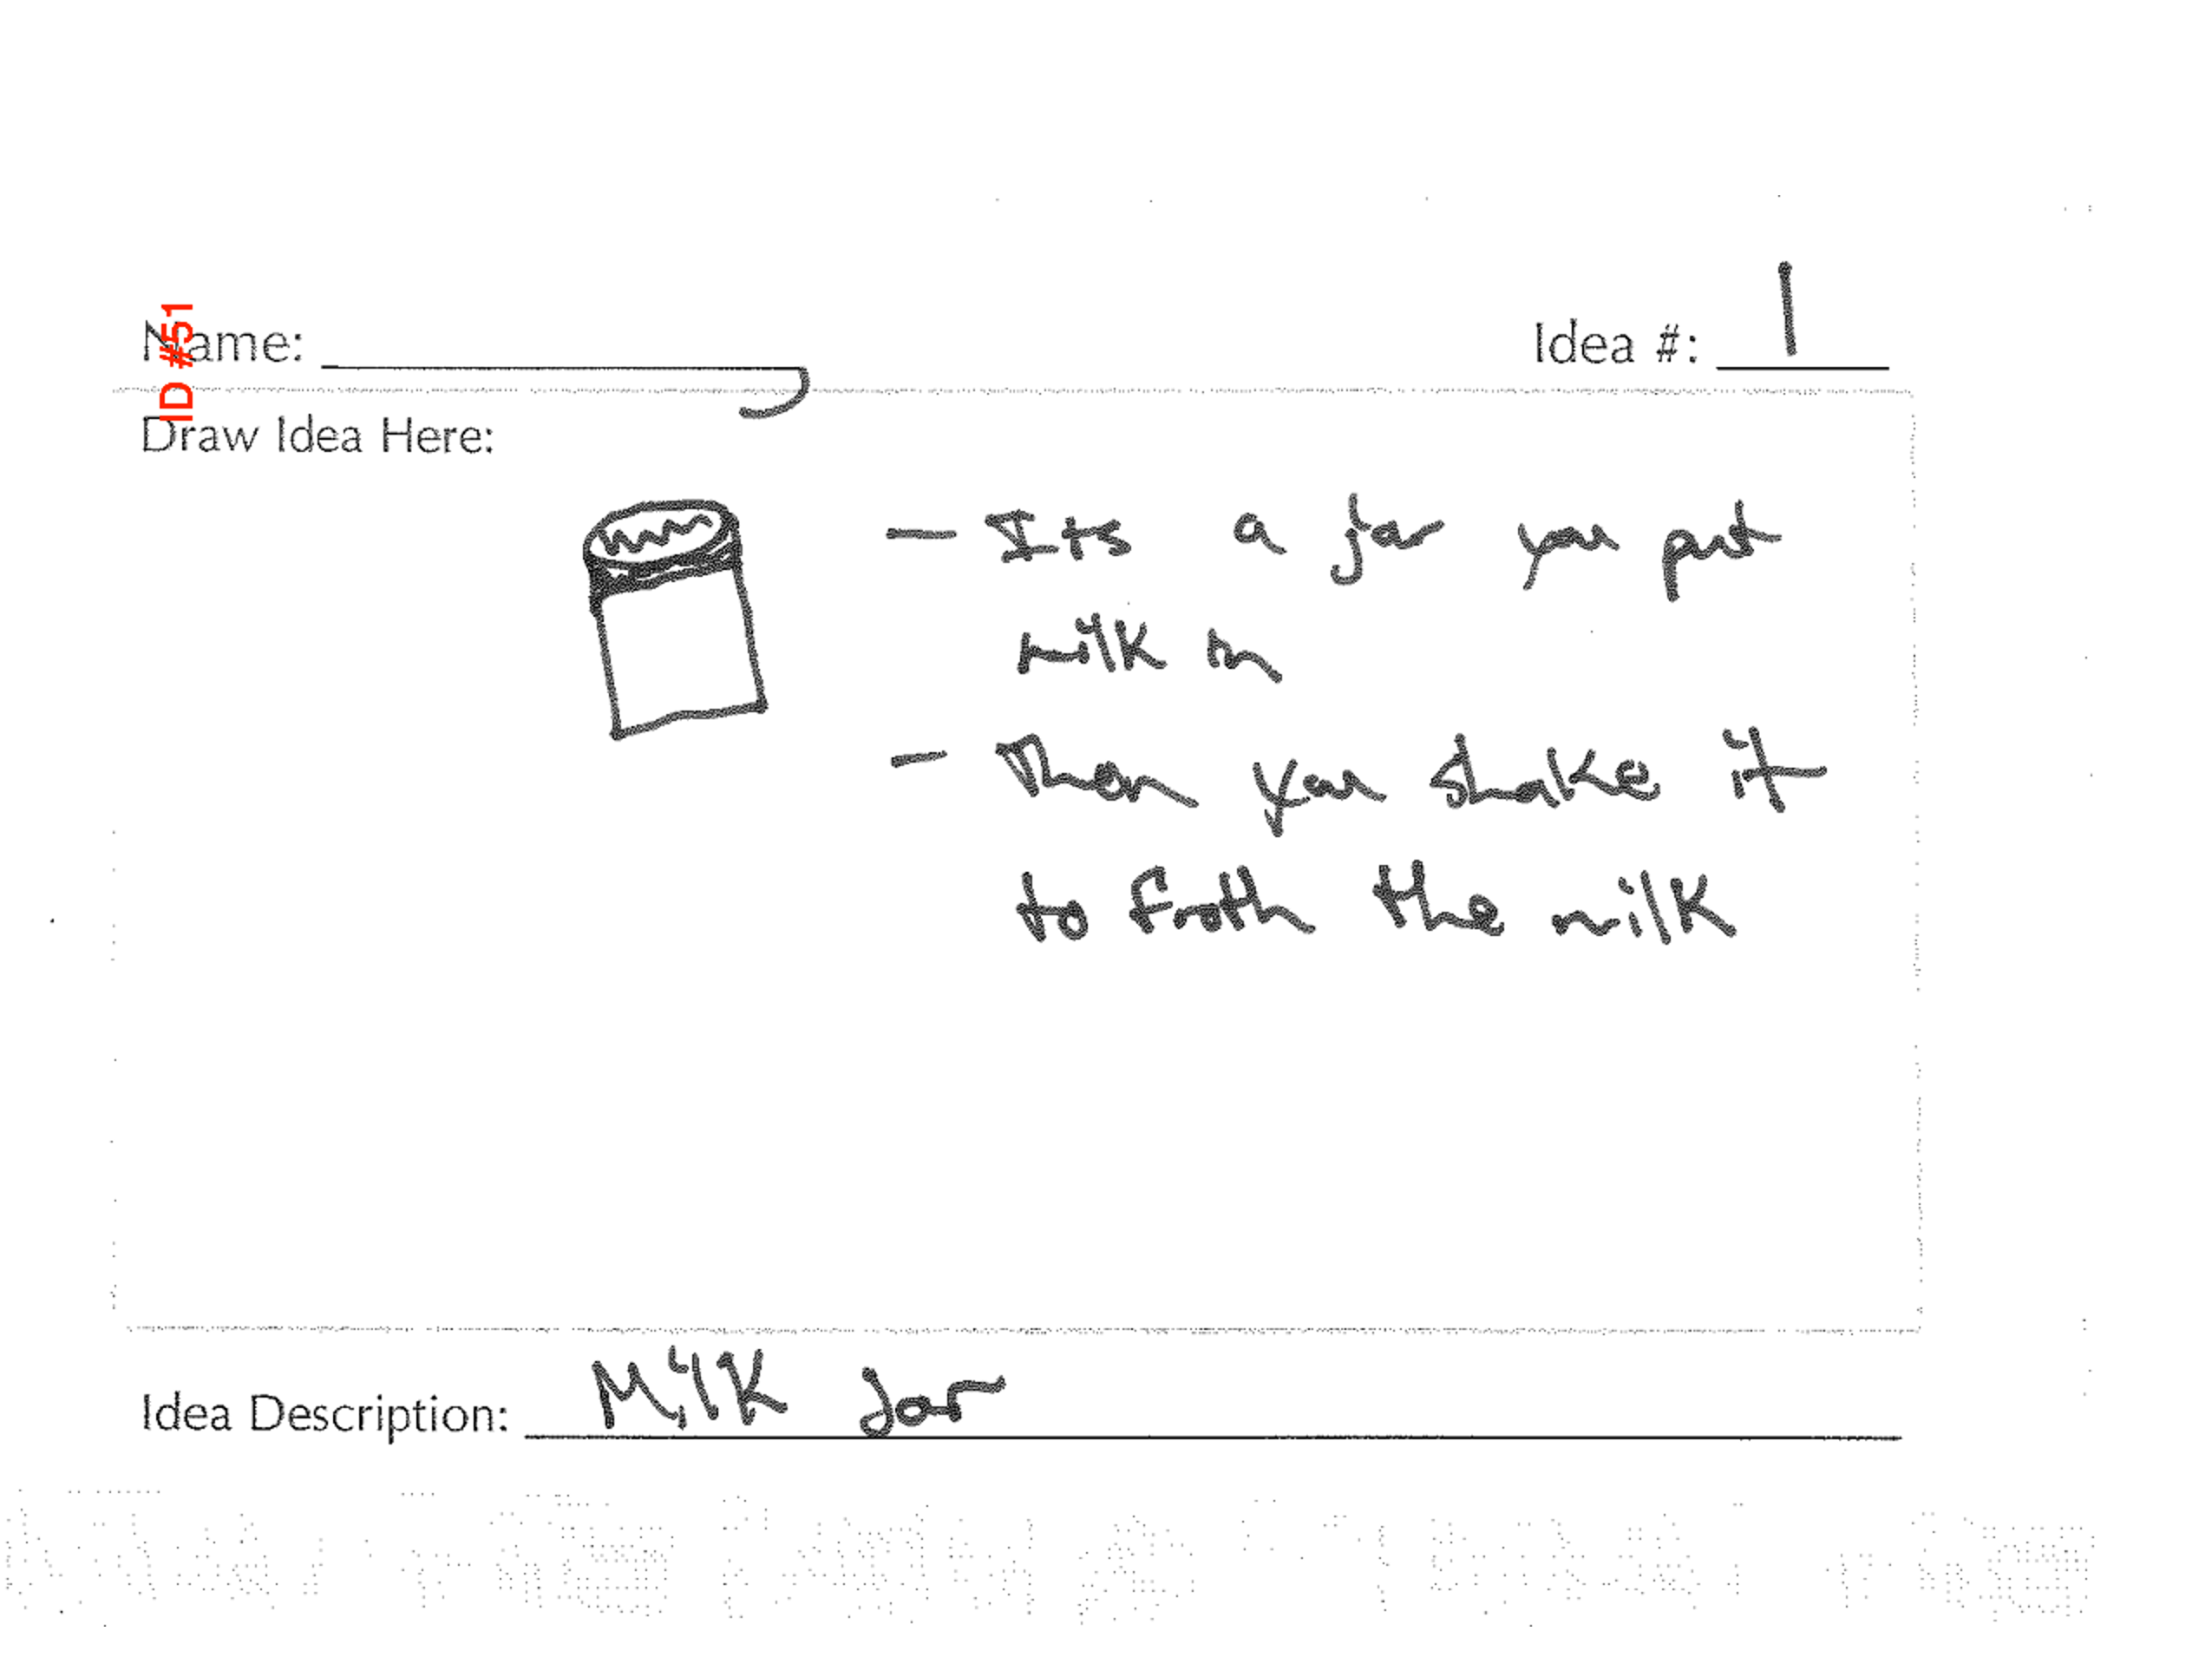 ID #51
Name:
Idea #: 1
Draw Idea Here:
- Its a jar you put
milk in
- Then you shake it
to froth the milk
Idea Description: Milk Jar